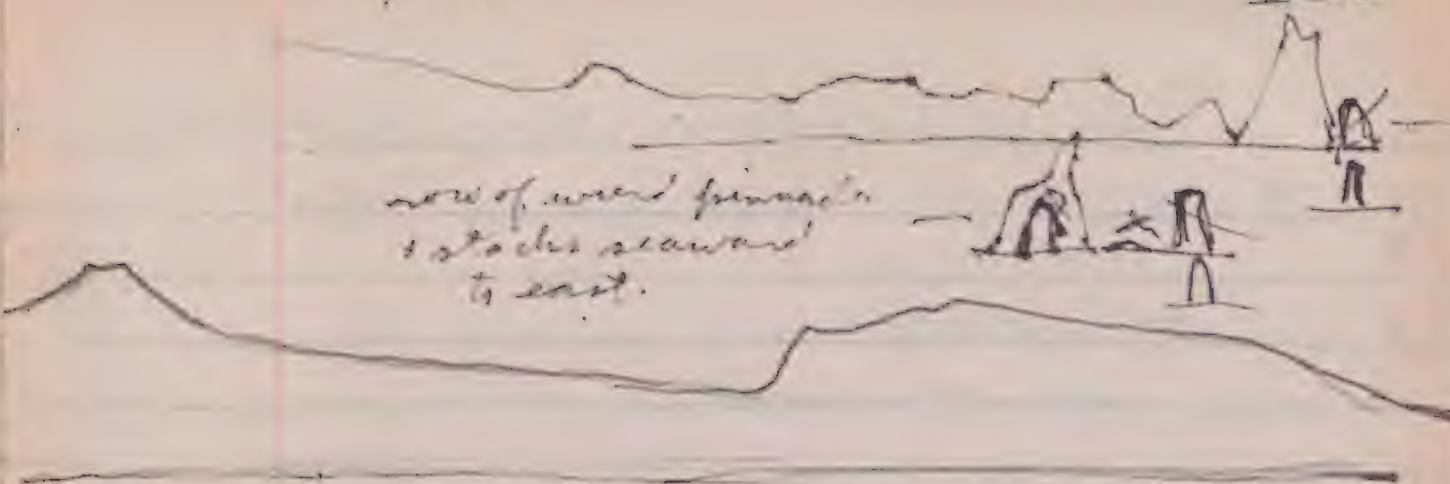 row of weird pinnacles
& stacks seaward
to east.